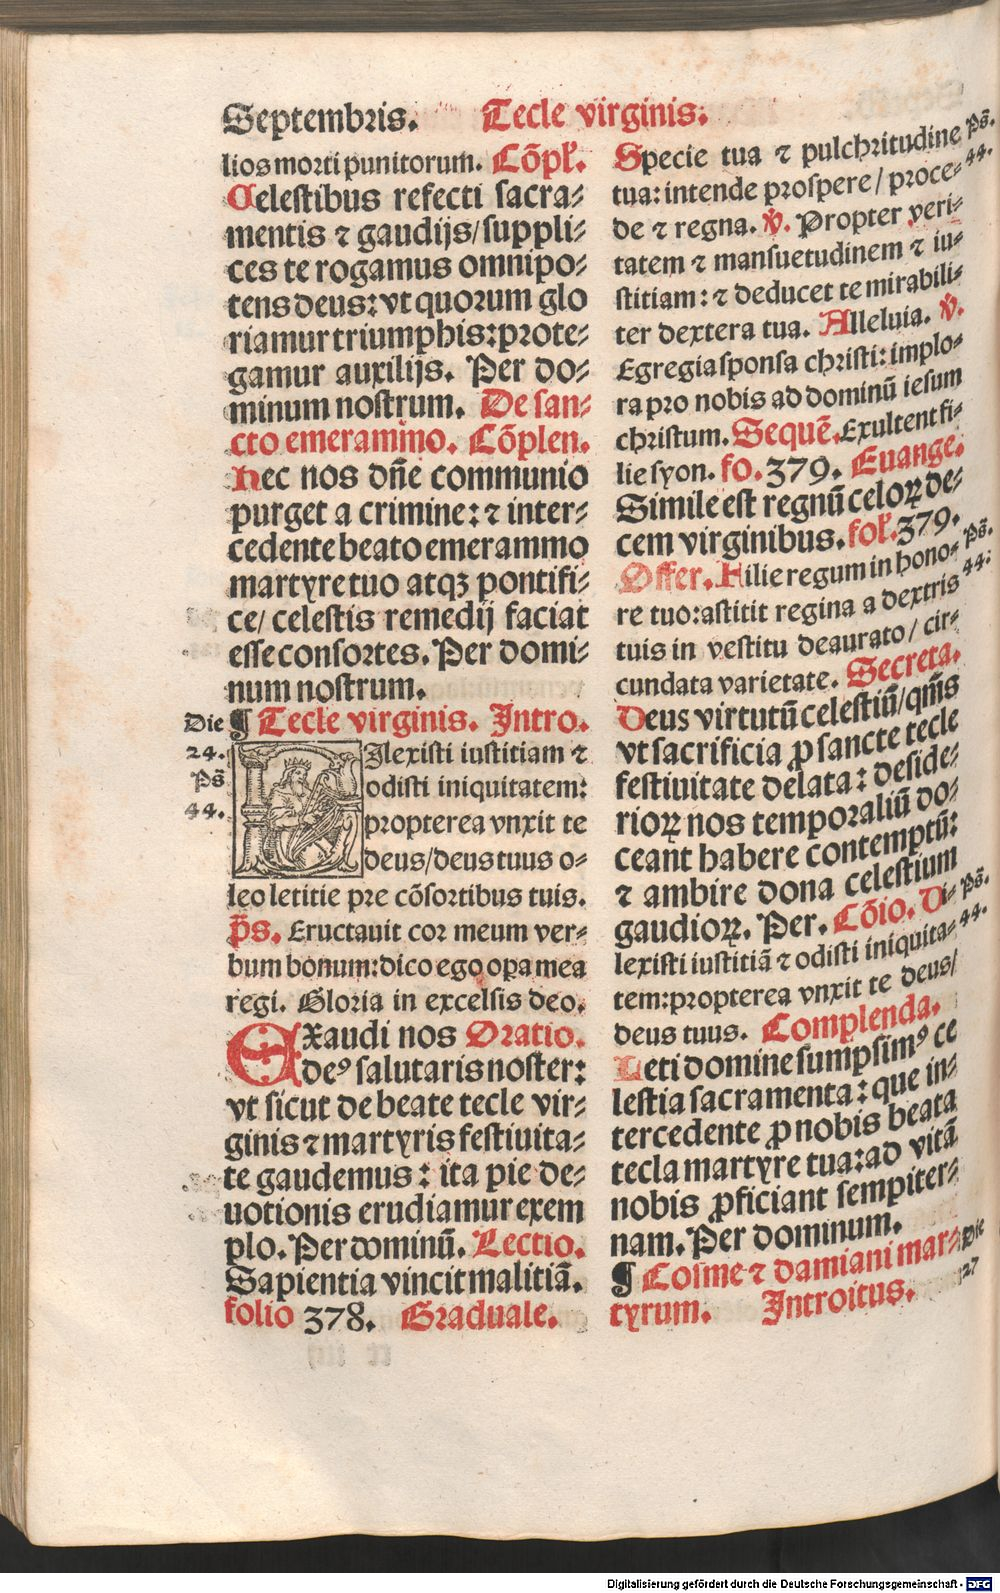 Septembris. Tecle virginis.
lios morti punitorum. Cōpl̄.
Celestibus refecti sacra⸗
mentis ⁊ gaudijs/suppli⸗
ces te rogamus omnipo⸗
tens deus: vt quorum glo
riamur triumphis: prote⸗
gamur auxilijs. Per do⸗
minum nostrum. De san⸗
cto emerammo. Cōplen.
Hec nos dn̄e communio
purget a crimine: ⁊ inter⸗
cedente beato emerammo
martyre tuo atqꝫ pontifi⸗
ce/ celestis remedij faciat
esse consortes. Per domi⸗
num nostrum.
Die ¶ Tecle virginis. Intro.
24.
Ps̄
44.
Ilexisti iustitiam ⁊
odisti iniquitatem:
propterea vnxit te
deus/deus tuus o⸗
leo letitie pre cōsortibus tuis.
p̄s. Eructauit cor meum ver⸗
bum bonum: dico ego oꝑa mea
regi. Gloria in excelsis deo.
Exaudi nos Oratio.
deꝰ salutaris noster:
vt sicut de beate tecle vir⸗
ginis ⁊ martyris festiuita⸗
te gaudemus: ita pie de⸗
uotionis erudiamur exem
plo. Per dominū. Lectio.
Sapientia vincit malitiā.
folio 378. Graduale.
Specie tua ⁊ pulchritudine Ps̄.
44.
tua: intende prospere/ proce⸗
de ⁊ regna. v̄. Propter veri⸗
tatem ⁊ mansuetudinem ⁊ iu⸗
stitiam: ⁊ deducet te mirabili⸗
ter dextera tua. Alleluia. v̄.
Egregia sponsa christi: implo⸗
ra pro nobis ad dominū iesum
christum. Sequē. Exultent fi⸗
lie syon. fo. 379. Euange.
Simile est regnū celoꝝ de⸗
cem virginibus. fol̄. 379.
Offer. Filie regum in hono⸗ Ps̄.
44:
re tuo: astitit regina a dextris
tuis in vestitu deaurato/ cir⸗
cundata varietate. Secreta.
Deus virtutū celestiū/ qm̄s
vt sacrificia ꝓ sancte tecle
festiuitate delata: deside⸗
rioꝝ nos temporaliū do⸗
ceant habere contemptū:
⁊ ambire dona celestium
gaudioꝝ. Per. Cōio. Di⸗ Ps̄.
44.
lexisti iustitiā ⁊ odisti iniquita⸗
tem: propterea vnxit te deus/
deus tuus. Complenda.
Leti domine sumpsimꝰ ce
lestia sacramenta: que in⸗
tercedente ꝓ nobis beata
tecla martyre tua: ad vitā
nobis ꝓficiant sempiter⸗
nam. Per dominum.
¶ Cosme ⁊ damiani mar⸗ Die
27
tyrum. Introitus.
Digitalisierung gefördert durch die Deutsche Forschungsgemeinschaft - DFG